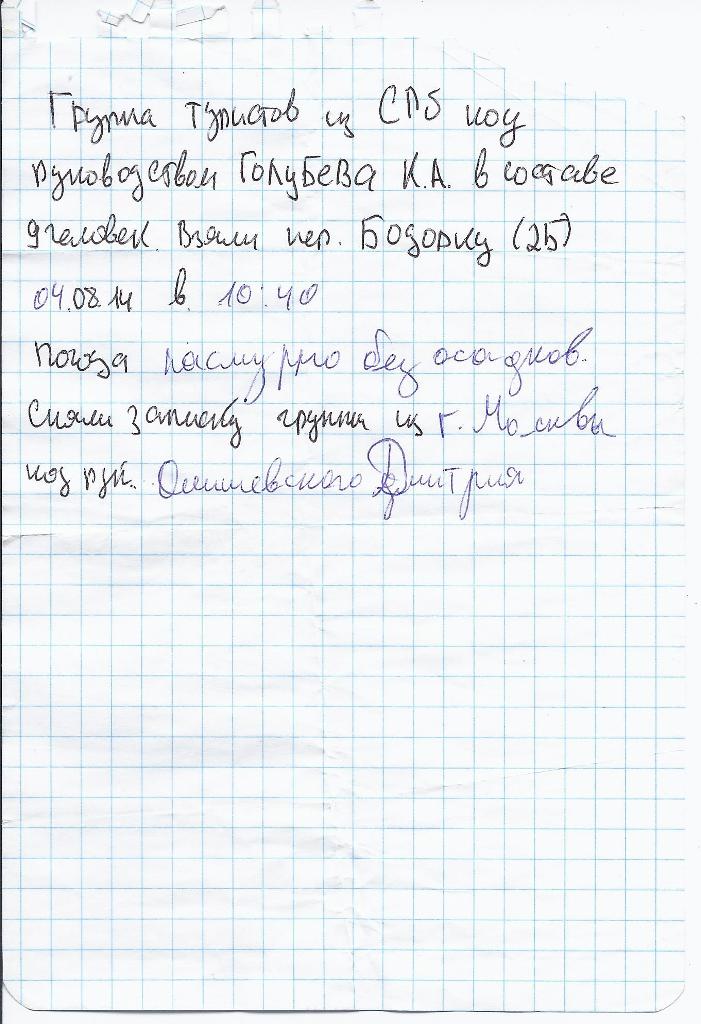 Группа туристов из СПб под
руководством Голубева К.А. в составе
9 человек. Взяли пер. Бодорку (2Б)
04.08.14 в 10:40
Погода пасмурно без осадков.
Сняли записку группы из г. Москвы
под рук. Дмитрия